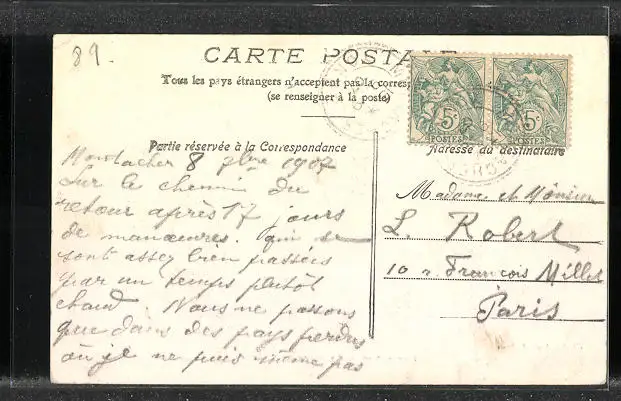 89.
CARTE POSTALE
Tous les pays étrangers n'acceptent pas la corresp
(se renseigner à la poste)
5c 5c
POSTES POSTES
Partie réservée à la Correspondance
Adresse du destinataire
8 7bre 1907
Sur le chemin du
retour après 17 jours
de manœuvres. qui se
sont assez bien passées
par un temps plutôt
chaud Nous ne passons
que dans des pays perdus
où je ne puis même pas
Madame et Monsieur
L. Robert
10 r. François Millet
Paris